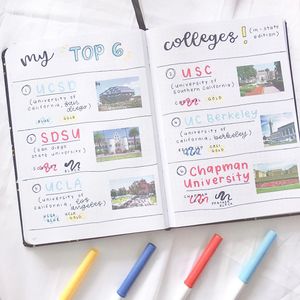 my TOP 6
① UCSD
(university of
california, san
diego)
BLUE GOLD
③ SDSU
(san diego
state university)
⑤ UCLA
(university of
california, los
angeles)
colleges! (in-state
edition)
② USC
(university of
southern california)
④ UC Berkeley
(university of
california, berkeley)
CALI GOLD
⑥ Chapman
University